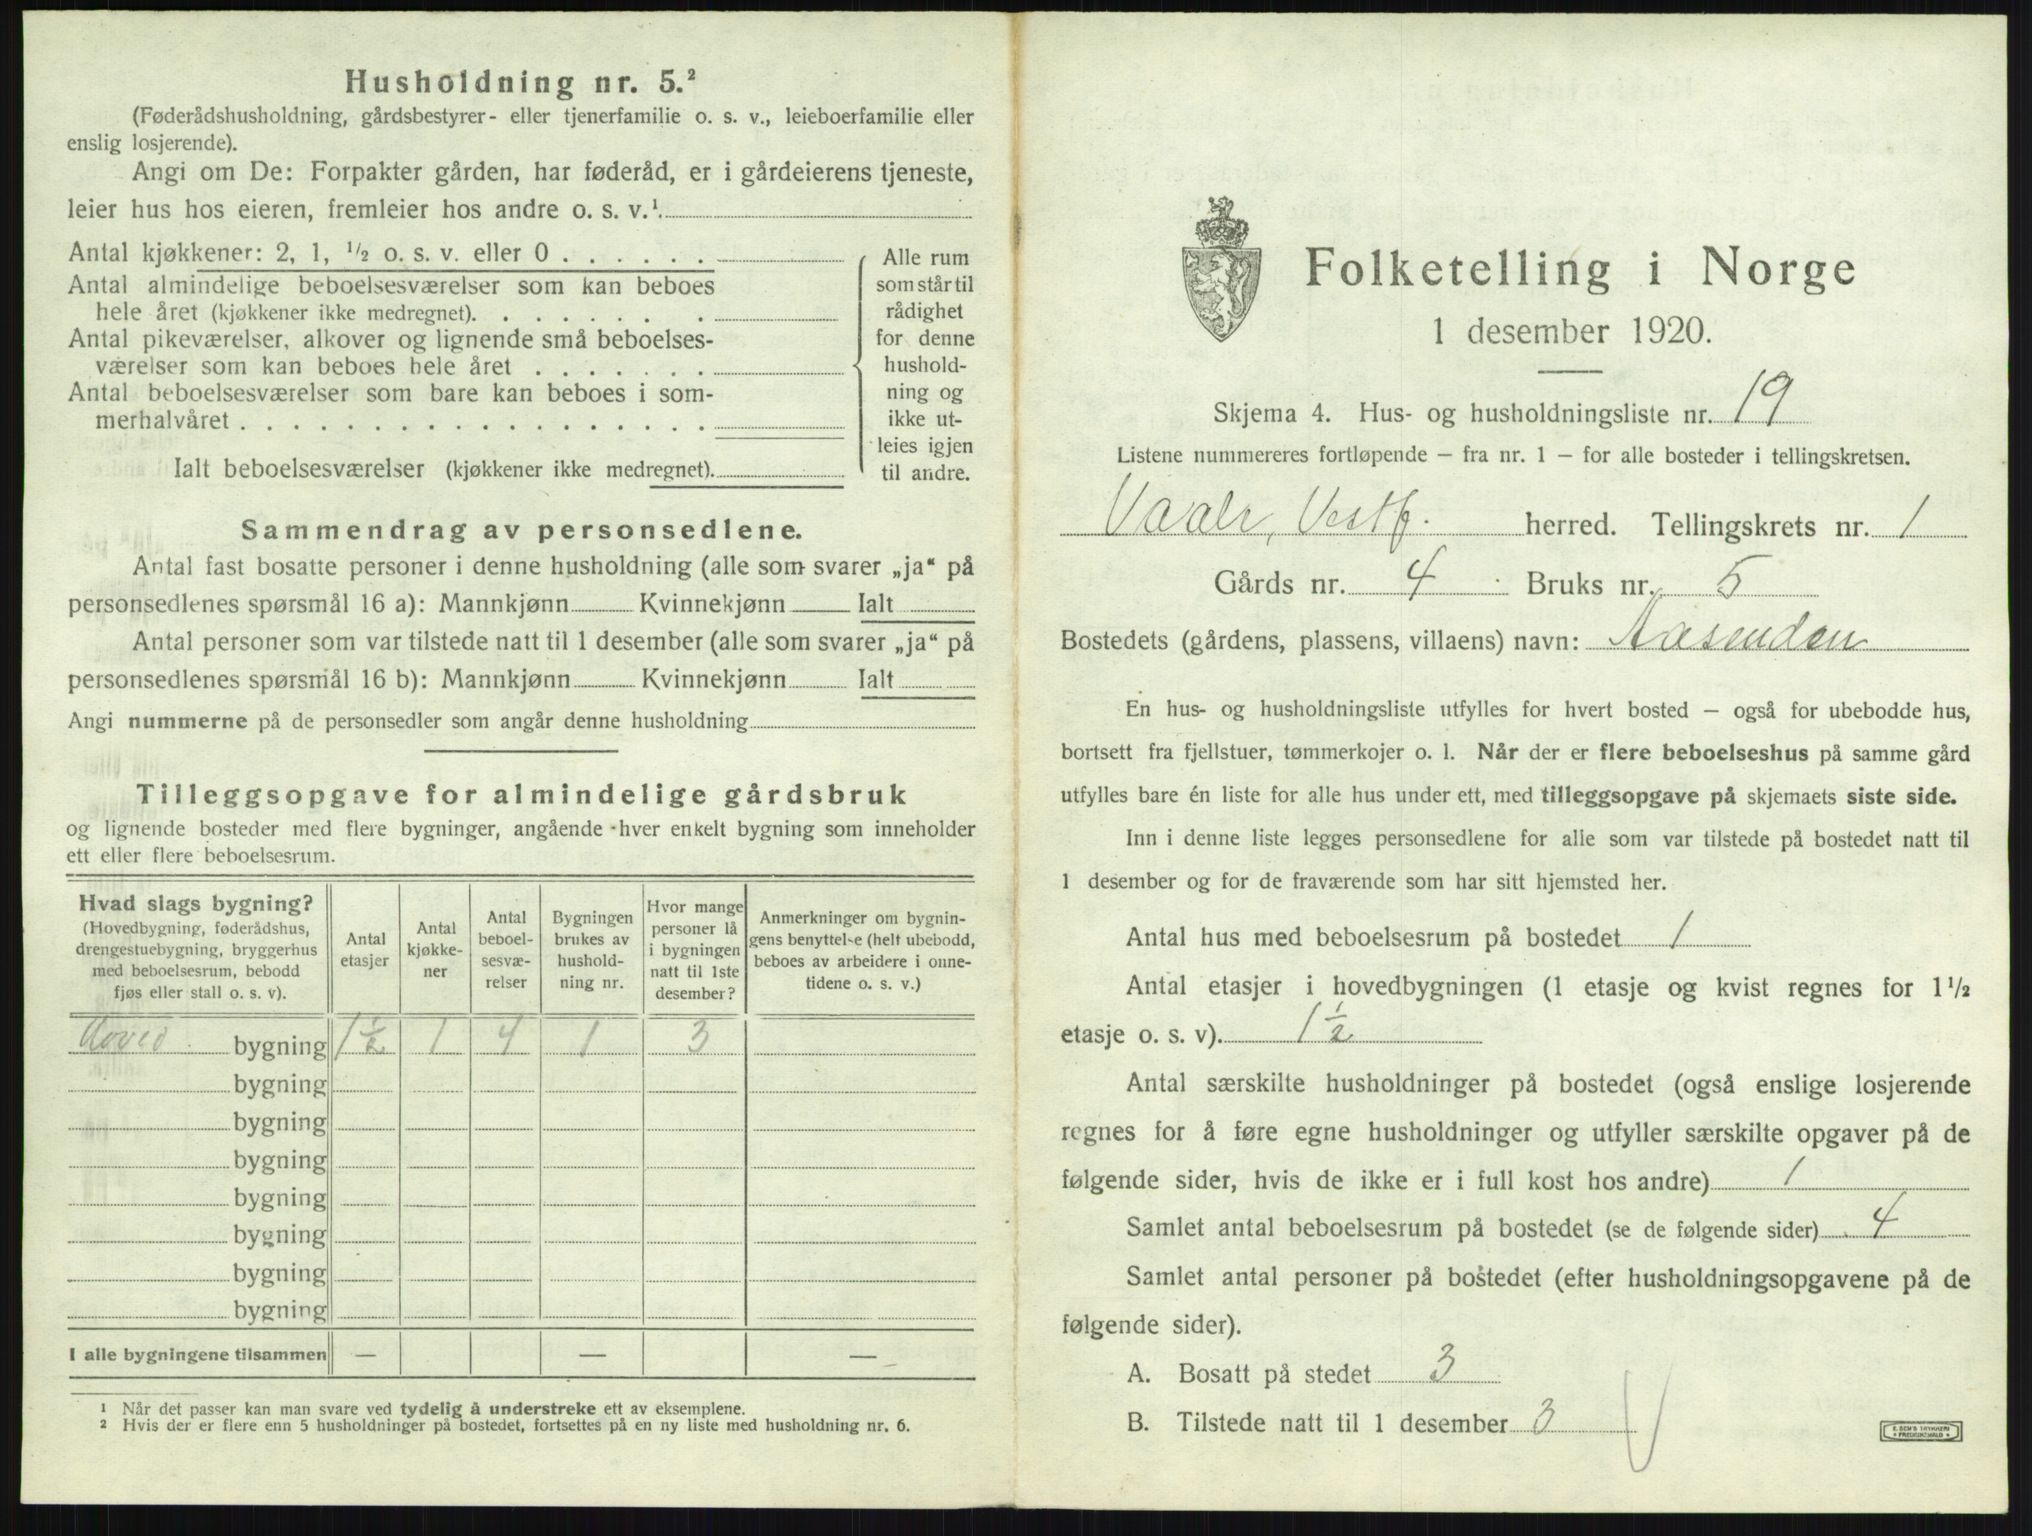 Husholdning nr. 5.²
(Føderådshusholdning, gårdsbestyrer- eller tjenerfamilie o. s. v., leieboerfamilie eller
enslig losjerende).
Angi om De: Forpakter gården, har føderåd, er i gårdeierens tjeneste,
leier hus hos eieren, fremleier hos andre o. s. v.¹
Antal kjøkkener: 2, 1, ½ o. s. v. eller 0 . . . . . .
Antal almindelige beboelsesværelser som kan beboes
hele året (kjøkkener ikke medregnet). . . . . . . .
Antal pikeværelser, alkover og lignende små beboelses-
værelser som kan beboes hele året . . . . . . .
Antal beboelsesværelser som bare kan beboes i som-
merhalvåret . . . . . . . . . . . . . . . . . .
Ialt beboelsesværelser (kjøkkener ikke medregnet).
Alle rum
som står til
rådighet
for denne
hushold-
ning og
ikke ut-
leies igjen
til andre.
Sammendrag av personsedlene.
Antal fast bosatte personer i denne husholdning (alle som svarer „ja“ på
personsedlenes spørsmål 16 a): Mannkjønn Kvinnekjønn Ialt
Antal personer som var tilstede natt til 1 desember (alle som svarer „ja“ på
personsedlenes spørsmål 16 b): Mannkjønn Kvinnekjønn Ialt
Angi nummerne på de personsedler som angår denne husholdning
Tilleggsopgave for almindelige gårdsbruk
og lignende bosteder med flere bygninger, angående hver enkelt bygning som inneholder
ett eller flere beboelsesrum.
Hvad slags bygning?
(Hovedbygning, føderådshus,
drengestuebygning, bryggerhus
med beboelsesrum, bebodd
fjøs eller stall o. s. v).
Antal
etasjer
Antal
kjøkke-
ner
Antal
beboel-
sesvæ-
relser
Bygningen
brukes av
hushold-
ning nr.
Hvor mange
personer lå
i bygningen
natt til 1ste
desember?
Anmerkninger om bygnin-
gens benyttelse (helt ubebodd,
beboes av arbeidere i onne-
tidene o. s. v.)
Hoved bygning 1½ 1 4 1 3
bygning
bygning
bygning
bygning
bygning
bygning
bygning
I alle bygningene tilsammen — — —
¹ Når det passer kan man svare ved tydelig å understreke ett av eksemplene.
² Hvis der er flere enn 5 husholdninger på bostedet, fortsettes på en ny liste med husholdning nr. 6.
Folketelling i Norge
1 desember 1920.
Skjema 4. Hus- og husholdningsliste nr. 19
Listene nummereres fortløpende – fra nr. 1 – for alle bosteder i tellingskretsen.
Vaale, Vestf. herred. Tellingskrets nr. 1
Gårds nr. 4 Bruks nr. 5
Bostedets (gårdens, plassens, villaens) navn: Aasenden
En hus- og husholdningsliste utfylles for hvert bosted – også for ubebodde hus,
bortsett fra fjellstuer, tømmerkojer o. l. Når der er flere beboelseshus på samme gård
utfylles bare én liste for alle hus under ett, med tilleggsopgave på skjemaets siste side.
Inn i denne liste legges personsedlene for alle som var tilstede på bostedet natt til
1 desember og for de fraværende som har sitt hjemsted her.
Antal hus med beboelsesrum på bostedet 1
Antal etasjer i hovedbygningen (1 etasje og kvist regnes for 1½
etasje o. s. v). 1½
Antal særskilte husholdninger på bostedet (også enslige losjerende
regnes for å føre egne husholdninger og utfyller særskilte opgaver på de
følgende sider, hvis de ikke er i full kost hos andre) 1
Samlet antal beboelsesrum på bostedet (se de følgende sider) 4
Samlet antal personer på bostedet (efter husholdningsopgavene på de
følgende sider).
A. Bosatt på stedet 3
B. Tilstede natt til 1 desember 3